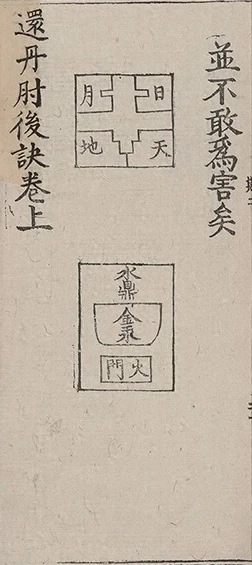 並不敢爲害矣
日月
天地
水鼎
金汞
火門
還丹肘後訣卷上